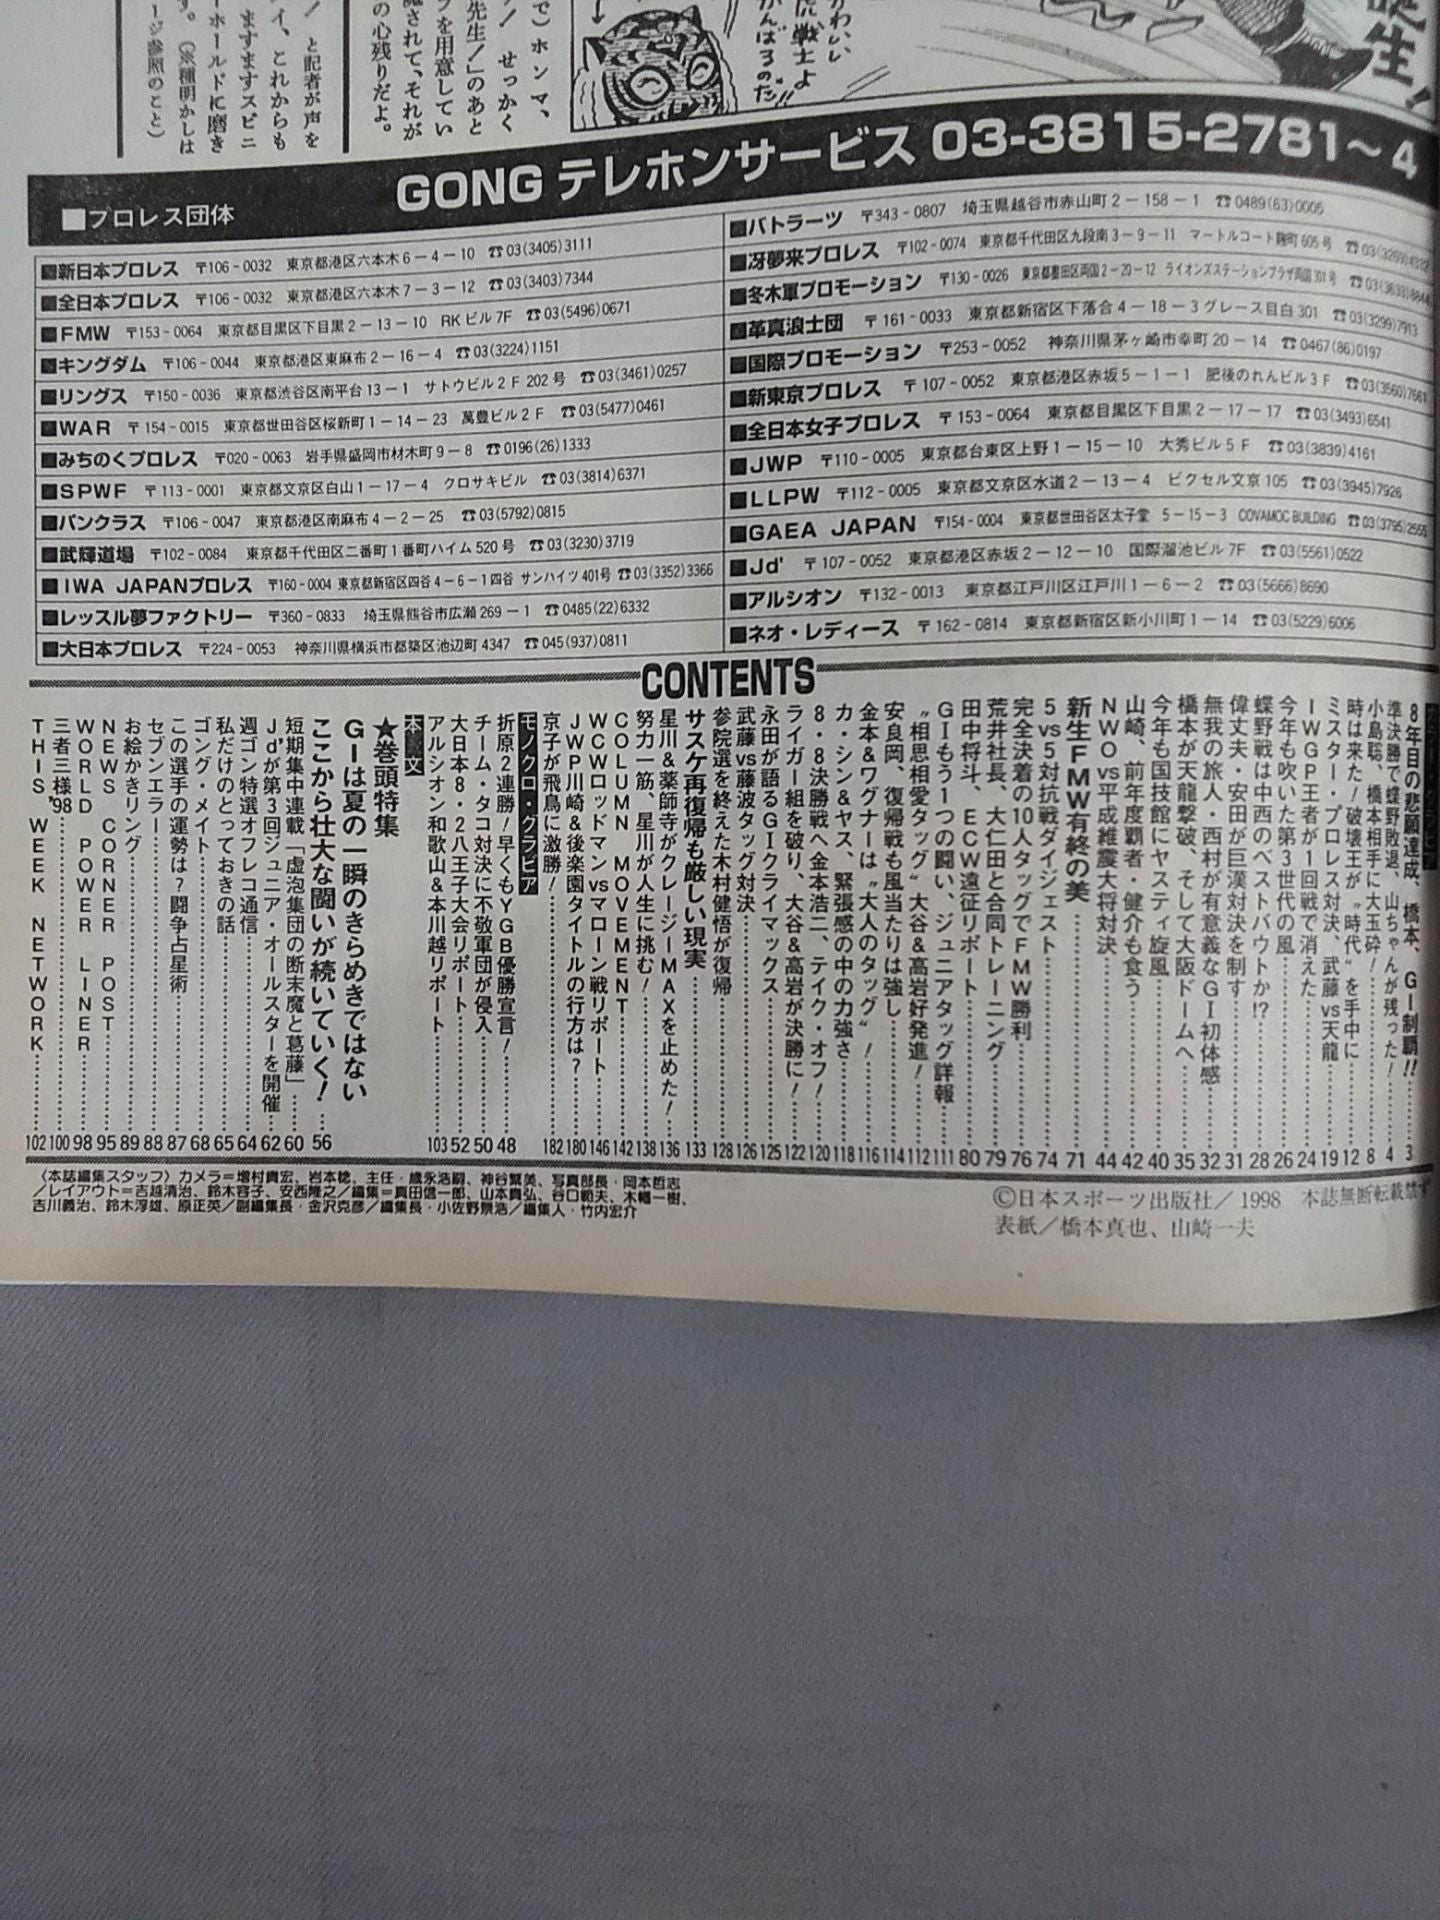 誕生！
かわいい
虎戦士よ
がんばろのだ!!
で）ホンマ、
ノ！ せっかく
先生！」のあと
プを用意してい
認されて、それが
の心残りだよ。
ノ！ と記者が声を
イ、これからも
ますますスピニ
ーホールドに磨き
す。（※種明かしは
ージ参照のこと）
GONG テレホンサービス 03-3815-2781～4
■プロレス団体
■新日本プロレス 〒106-0032 東京都港区六本木6-4-10 ☎03(3405)3111
■全日本プロレス 〒106-0032 東京都港区六本木7-3-12 ☎03(3403)7344
■FMW 〒153-0064 東京都目黒区下目黒2-13-10 RKビル7F ☎03(5496)0671
■キングダム 〒106-0044 東京都港区東麻布2-16-4 ☎03(3224)1151
■リングス 〒150-0036 東京都渋谷区南平台13-1 サトウビル2F 202号 ☎03(3461)0257
■WAR 〒154-0015 東京都世田谷区桜新町1-14-23 萬豊ビル2F ☎03(5477)0461
■みちのくプロレス 〒020-0063 岩手県盛岡市材木町9-8 ☎0196(26)1333
■SPWF 〒113-0001 東京都文京区白山1-17-4 クロサキビル ☎03(3814)6371
■パンクラス 〒106-0047 東京都港区南麻布4-2-25 ☎03(5792)0815
■武輝道場 〒102-0084 東京都千代田区二番町1番町ハイム520号 ☎03(3230)3719
■IWA JAPANプロレス 〒160-0004 東京都新宿区四谷4-6-1四谷 サンハイツ401号 ☎03(3352)3366
■レッスル夢ファクトリー 〒360-0833 埼玉県熊谷市広瀬269-1 ☎0485(22)6332
■大日本プロレス 〒224-0053 神奈川県横浜市都築区池辺町4347 ☎045(937)0811
■バトラーツ 〒343-0807 埼玉県越谷市赤山町2-158-1 ☎0489(63)0005
■冴夢来プロレス 〒102-0074 東京都千代田区九段南3-9-11 マートルコート麹町605号 ☎03(3269)4932
■冬木軍プロモーション 〒130-0026 東京都墨田区両国2-20-12 ライオンズステーションプラザ両国301号 ☎03(3633)8844
■革真浪士団 〒161-0033 東京都新宿区下落合4-18-3グレース目白301 ☎03(3299)7913
■国際プロモーション 〒253-0052 神奈川県茅ヶ崎市幸町20-14 ☎0467(86)0197
■新東京プロレス 〒107-0052 東京都港区赤坂5-1-1 肥後のれんビル3F ☎03(3560)7661
■全日本女子プロレス 〒153-0064 東京都目黒区下目黒2-17-17 ☎03(3493)6541
■JWP 〒110-0005 東京都台東区上野1-15-10 大秀ビル5F ☎03(3839)4161
■LLPW 〒112-0005 東京都文京区水道2-13-4 ピクセル文京105 ☎03(3945)7926
■GAEA JAPAN 〒154-0004 東京都世田谷区太子堂 5-15-3 COVAMOC BUILDING ☎03(3795)2555
■Jd' 〒107-0052 東京都港区赤坂2-12-10 国際溜池ビル7F ☎03(5561)0522
■アルシオン 〒132-0013 東京都江戸川区江戸川1-6-2 ☎03(5666)8690
■ネオ・レディース 〒162-0814 東京都新宿区新小川町1-14 ☎03(5229)6006
CONTENTS
カラー・グラビア
8年目の悲願達成、橋本、G1制覇!!……3
準決勝で蝶野敗退、山ちゃんが残った！……4
小島聡、橋本相手に大玉砕！……8
時は来た！破壊王が〝時代〟を手中に……12
ミスター・プロレス対決、武藤vs天龍……19
IWGP王者が1回戦で消えた……24
今年も吹いた第3世代の風……26
蝶野戦は中西のベストバウトか!?……28
偉丈夫・安田が巨漢対決を制す……31
無我の旅人・西村が有意義なGI初体感……32
橋本が天龍撃破、そして大阪ドームへ……35
今年も国技館にヤスティ旋風……40
山崎、前年度覇者・健介も食う……42
NWO vs平成維震大将対決……44
新生FMW有終の美……71
5vs5対抗戦ダイジェスト……74
完全決着の10人タッグでFMW勝利……76
荒井社長、大仁田と合同トレーニング……79
田中将斗、ECW遠征リポート……80
GIもう1つの闘い、ジュニアタッグ詳報……111
〝相思相愛タッグ〟大谷&高岩好発進！……112
安良岡、復帰戦も風当たりは強し……114
金本&ワグナーは〝大人のタッグ〟！……116
カ・シン&ヤス、緊張感の中の力強さ……118
8・8決勝戦へ金本浩二、テイク・オフ！……120
ライガー組を破り、大谷&高岩が決勝に！……122
永田が語るGIクライマックス……125
武藤vs藤波タッグ対決……126
参院選を終えた木村健悟が復帰……128
サスケ再復帰も厳しい現実……133
星川&薬師寺がクレージーMAXを止めた！……136
努力一筋、星川が人生に挑む！……138
COLUMN MOVEMENT……142
WCWロッドマンvsマローン戦リポート……146
JWP川崎&後楽園タイトルの行方は？……180
京子が飛鳥に激勝！……182
モノクロ・グラビア
折原2連勝！早くもYGB優勝宣言！……48
チーム・タコ対決に不敬軍団が侵入……50
大日本8・2八王子大会リポート……52
アルシオン和歌山&本川越リポート……103
本文
★巻頭特集
GIは夏の一瞬のきらめきではない
ここから壮大な闘いが続いていく！……56
短期集中連載「虚泡集団の断末魔と葛藤」……60
Jd'が第3回ジュニア・オールスターを開催……62
週ゴン特選オフレコ通信……64
私だけのとっておきの話……65
ゴング・メイト……68
この選手の運勢は？闘争占星術……87
セブンエラー……88
お絵かきリング……89
NEWS CORNER POST……95
WORLD POWER LINER……98
三者三様'98……100
THIS WEEK NETWORK……102
〈本誌編集スタッフ〉カメラ＝増村貴宏、岩本稔、主任・歳永浩嗣、神谷繁美、写真部長・岡本哲志
／レイアウト＝吉越清治、鈴木容子、安西隆之／編集＝真田信一郎、山本貴弘、谷口範夫、木幡一樹、
吉川義治、鈴木淳雄、原正英／副編集長・金沢克彦／編集長・小佐野景浩／編集人・竹内宏介
©日本スポーツ出版社／1998 本誌無断転載禁ず
表紙／橋本真也、山崎一夫